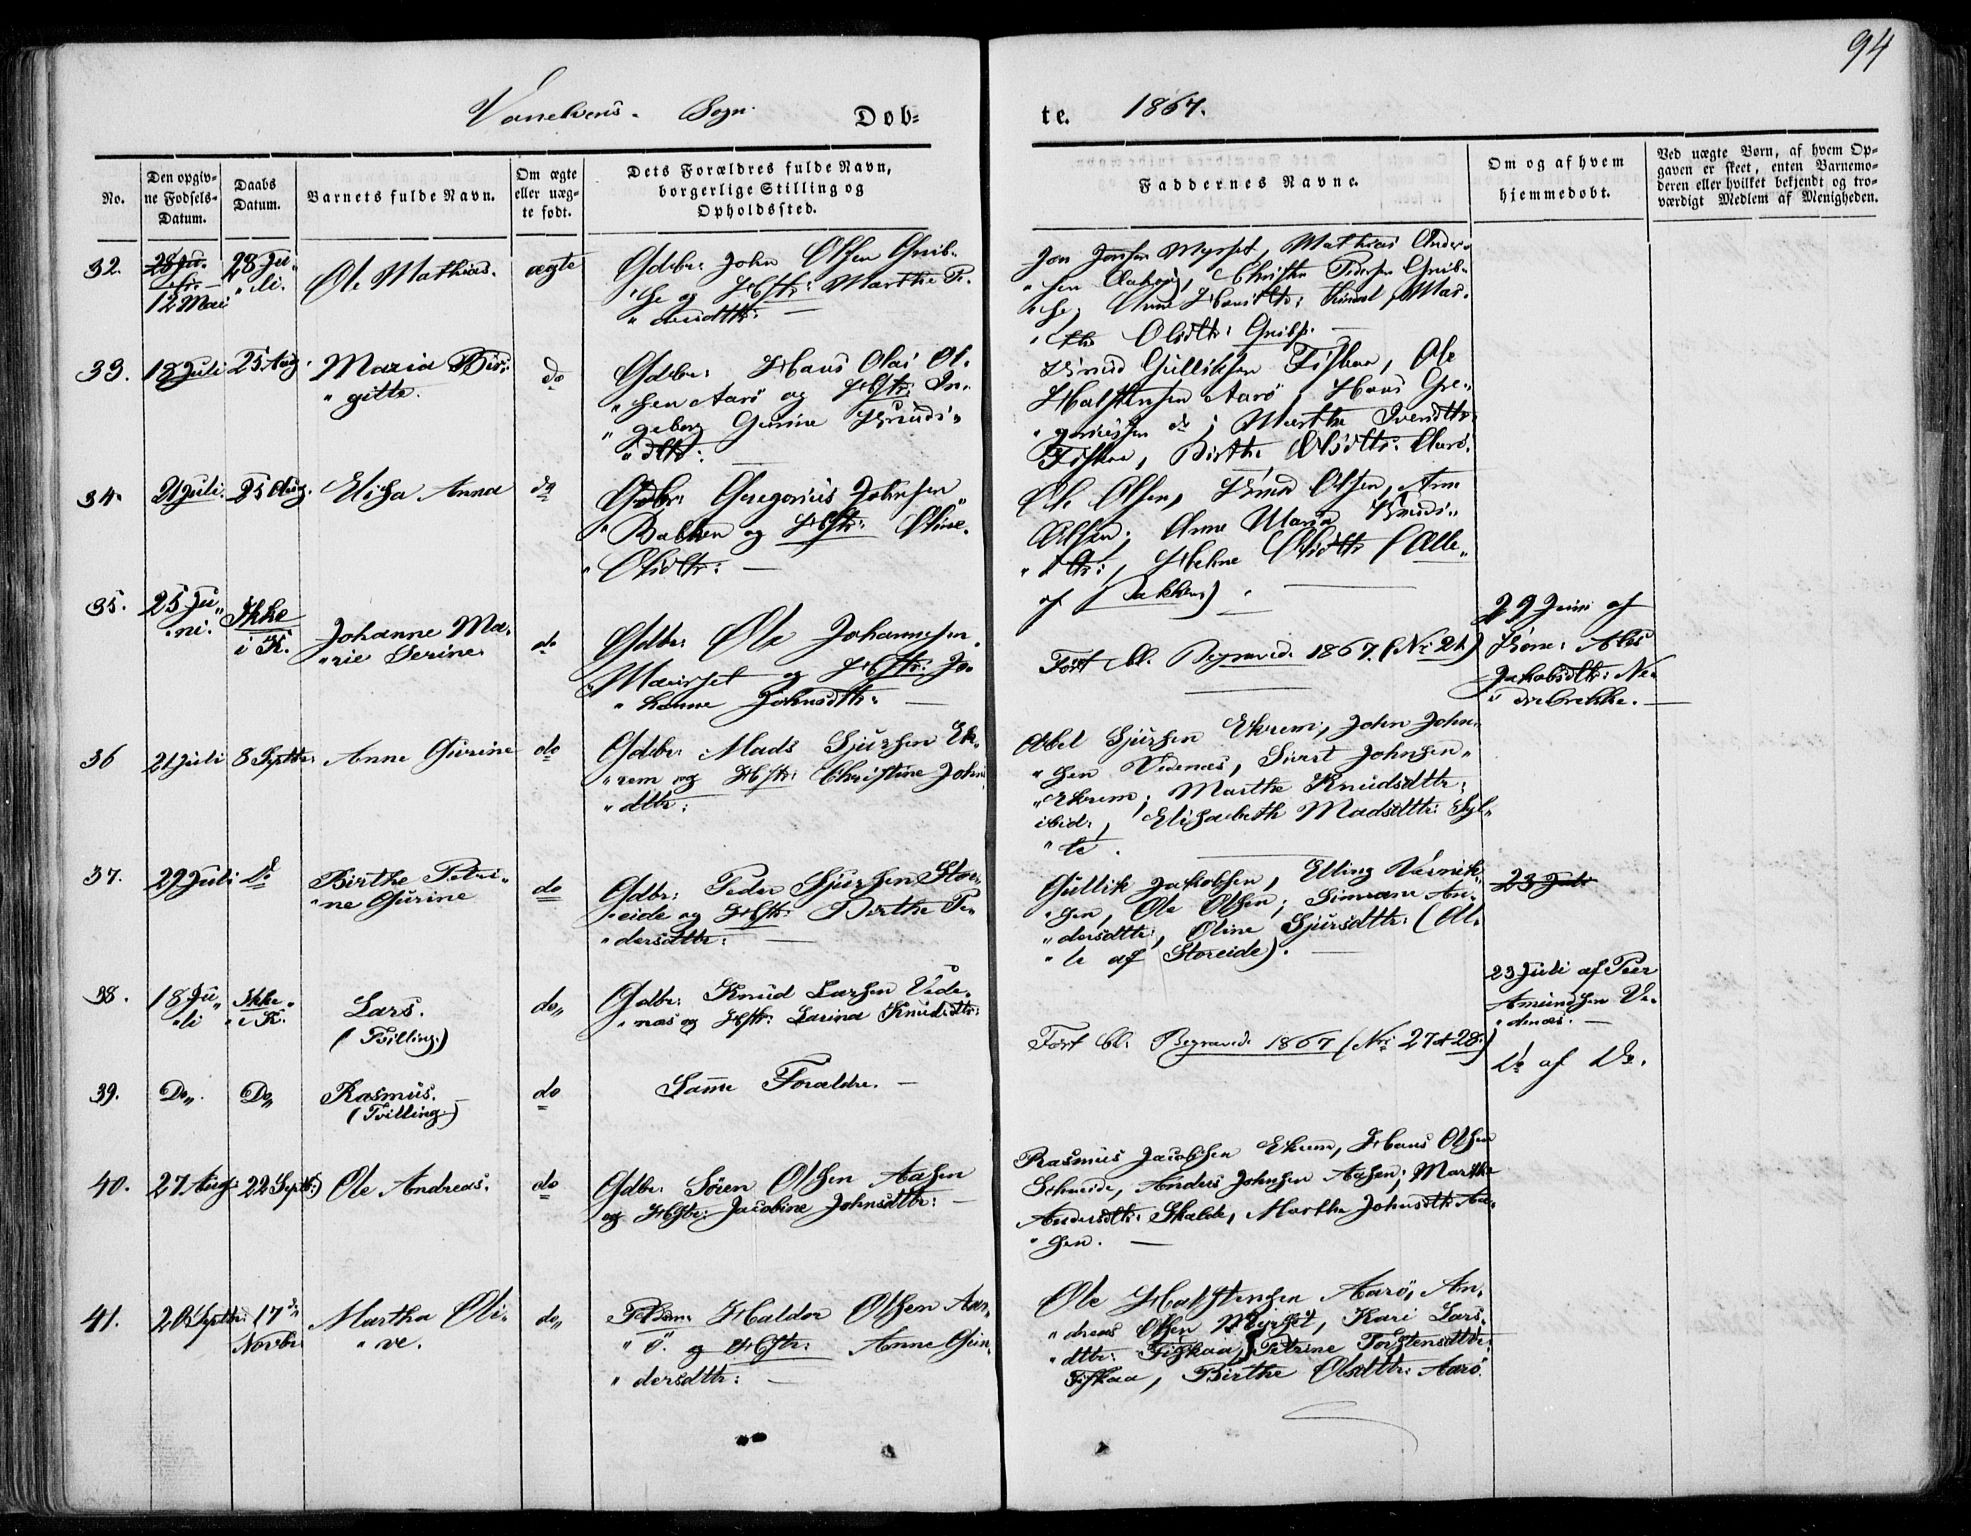 94
Vanelvens Sogn. Dob-te. 1867.
No.
Den opgiv-
ne Fødsels-
Datum.
Daabs
Datum.
Barnets fulde Navn.
Om ægte
eller uæg-
te født.
Dets Forældres fulde Navn,
borgerlige Stilling og
Opholdssted.
Faddernes Navne.
Om og af hvem
hjemmedøbt.
Ved uægte Børn, af hvem Op-
gaven er skeet, enten Barnemo-
deren eller hvilket bekjendt og tro-
værdigt Medlem af Menigheden.
32.
12 Mai
28 Ju-
"li.
Ole Mathias.
ægte
Gdbr: John Olsen Grib-
"se og Hstr: Marthe Pe-
"dersdtr: —
Jon Jonsen Myrset, Mathias Ander-
"sen Christen Pedersen Grib-
"se, Anne Mar-
"the Olsdtr: Gribse. —
33.
18 Juli
25 Aug.
Maria Bir-
"gitte.
do
Gdbr: Hans Olai Ol-
"sen Aarö og Hstr: In-
"geborg Gurine Knuds-
"dtr: —
Knud Gulliksen Fiskaa, Ole
Halstensen Aarö, Hans Gre-
"goriussen do; Marthe Iversdtr:
Fiskaa, Birthe Olsdtr: Aarö.
34.
21 Juli.
25 Aug.
Elisa Anna
do
Gdbr: Gregorius Johnsen
"Bakken og Hstr: Oline
"Olsdtr: —
Ole Olsen, Knud Olsen, Arne
Olsen; Anne Maria Knuds-
"dtr:, Helene Olsdtr (Alle
af Bakken). —
35.
25 Ju-
"ni.
Ikke
i K.
Johanne Ma-
"rie Serine.
do
Gdbr: Ole Johannesen
"Maurset og Hstr: Jo-
"hanne Johnsdtr: —
Fort bl. Begravede 1867. (No 21)
29 Juni af
Kone: Abel
Jakobsdtr: Ne-
"drebrekke. —
36
21 Juli
8 Septbr:
Anne Gurine
do
Gdbr: Mads Sjursen Ek-
"rem og Hstr: Christine John-
"dtr:
Abel Sjursen Ekrem, John John-
"sen Vedenæs, Sivert Johnsen
"Ekrem; Marthe Knudsdtr:
ibid:, Elisabeth Madsdtr: Syl-
"te.
37.
29 Juli
Do
Birthe Petri-
"ne Gurine
do
Gdbr: Peder Sjursen Stor-
"eide og Hstr: Berthe Pe-
"dersdtr: —
Gullik Jakobsen, Elling Rasmus-
"sen, Ole Olsen; An-
"dersdtr:, Oline Sjursdtr: (Al-
"le af Storeide). —
23 Juli
38.
18 Ju-
"li
Ikke
i K.
Lars.
(Tvilling)
do
Gdbr: Knud Larsen Vede-
"næs og Hstr: Larina Knudsdtr:
Fort bl. Begravede 1867 (Nri 27 & 28.)
23 Juli af Peer
Amundsen Ve-
"denæs. —
39.
Do
Do
Rasmus. —
(Tvilling)
do
Samme Forældre. —
Do af Do.
40.
27 Aug:
22 Septb:
Ole Andreas.
do
Gdbr: Sören Olsen Aasen
og Hstr: Jacobine Johnsdtr: —
Rasmus Jacobsen Ekrem, Hans Olsen
Anders Johnsen Aasen; Marthe
Andersdtr: Skalde, Marthe Johnsdtr Aa-
"sen. —
41.
20 Septbr:
17de
Novbr:
Martha Oli-
"ve.
do
Haldor Olsen Aar-
"ö. og Hstr: Anne Gun-
"dersdtr: —
Ole Halstensen Aarö, An-
"dreas Olsen Myrset, Kari Lars-
"dtr: Fiskaa, Petrine Torstensdtr:
Fiskaa, Birthe Olsdtr: Aarö.